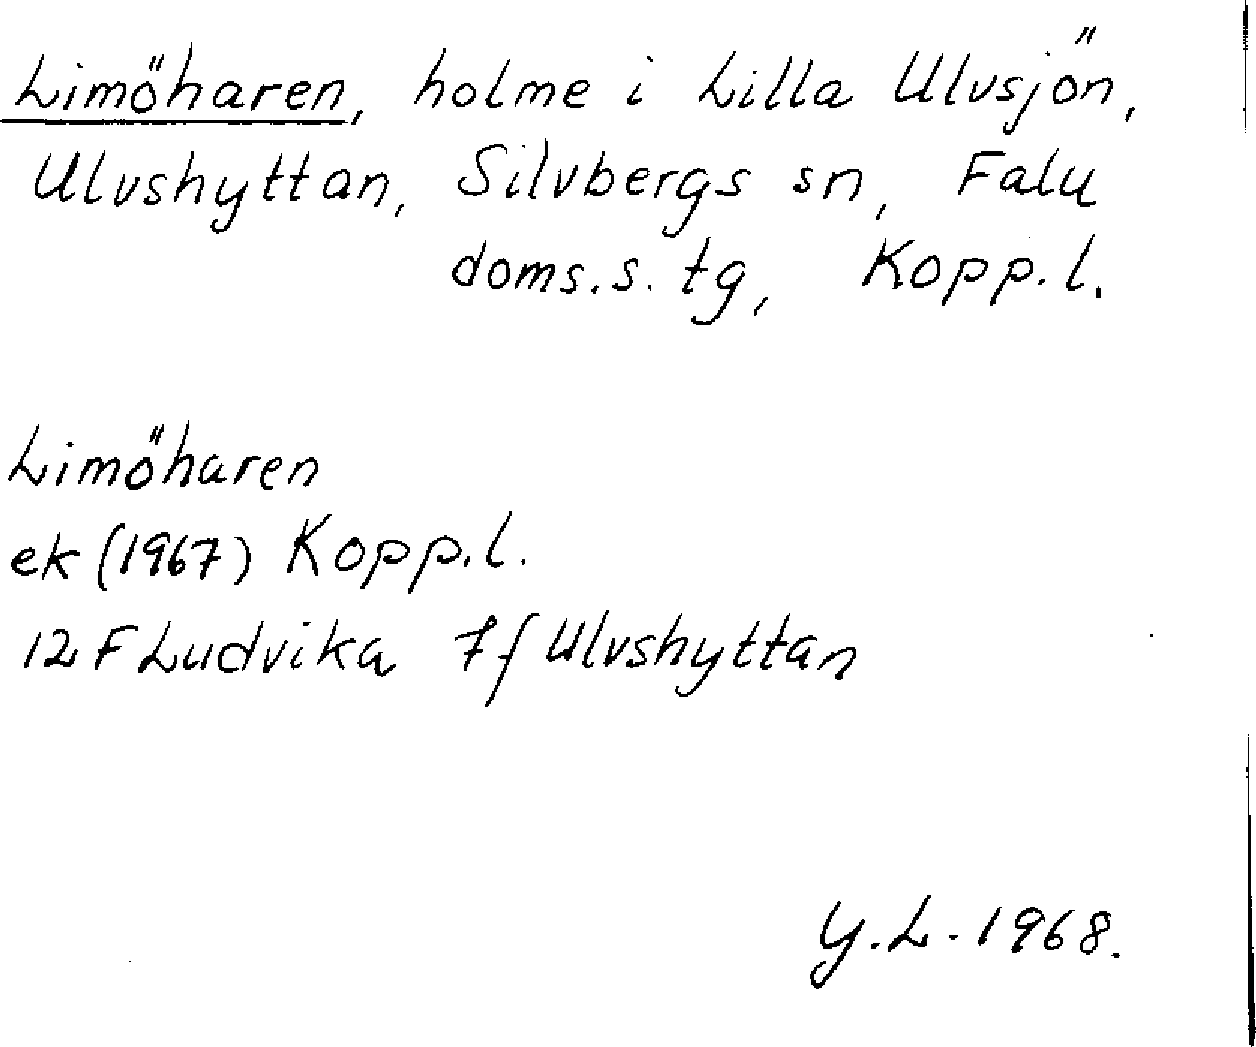 Limöharen, holme i Lilla Ulvsjön,
Ulvshyttan, Silvbergs sn, Falu
doms.s. tg, Kopp. l.
Limöharen
ek (1967) Kopp. l.
12 F Ludvika 7f Ulvshyttan
Y. L. 1968.